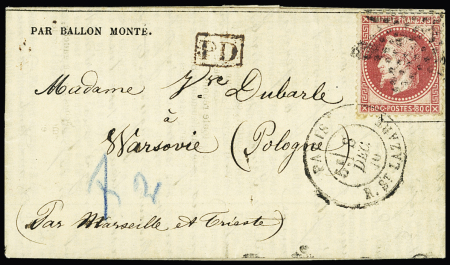 PAR BALLON MONTÉ.
PD
EMPIRE FRANÇAIS
80 C POSTES 80 C
Madame Vve Dubarle
à
Varsovie (Pologne)
PARIS R. ST LAZARE
5E 8 DEC. 70
(Par Marseille et Trieste)